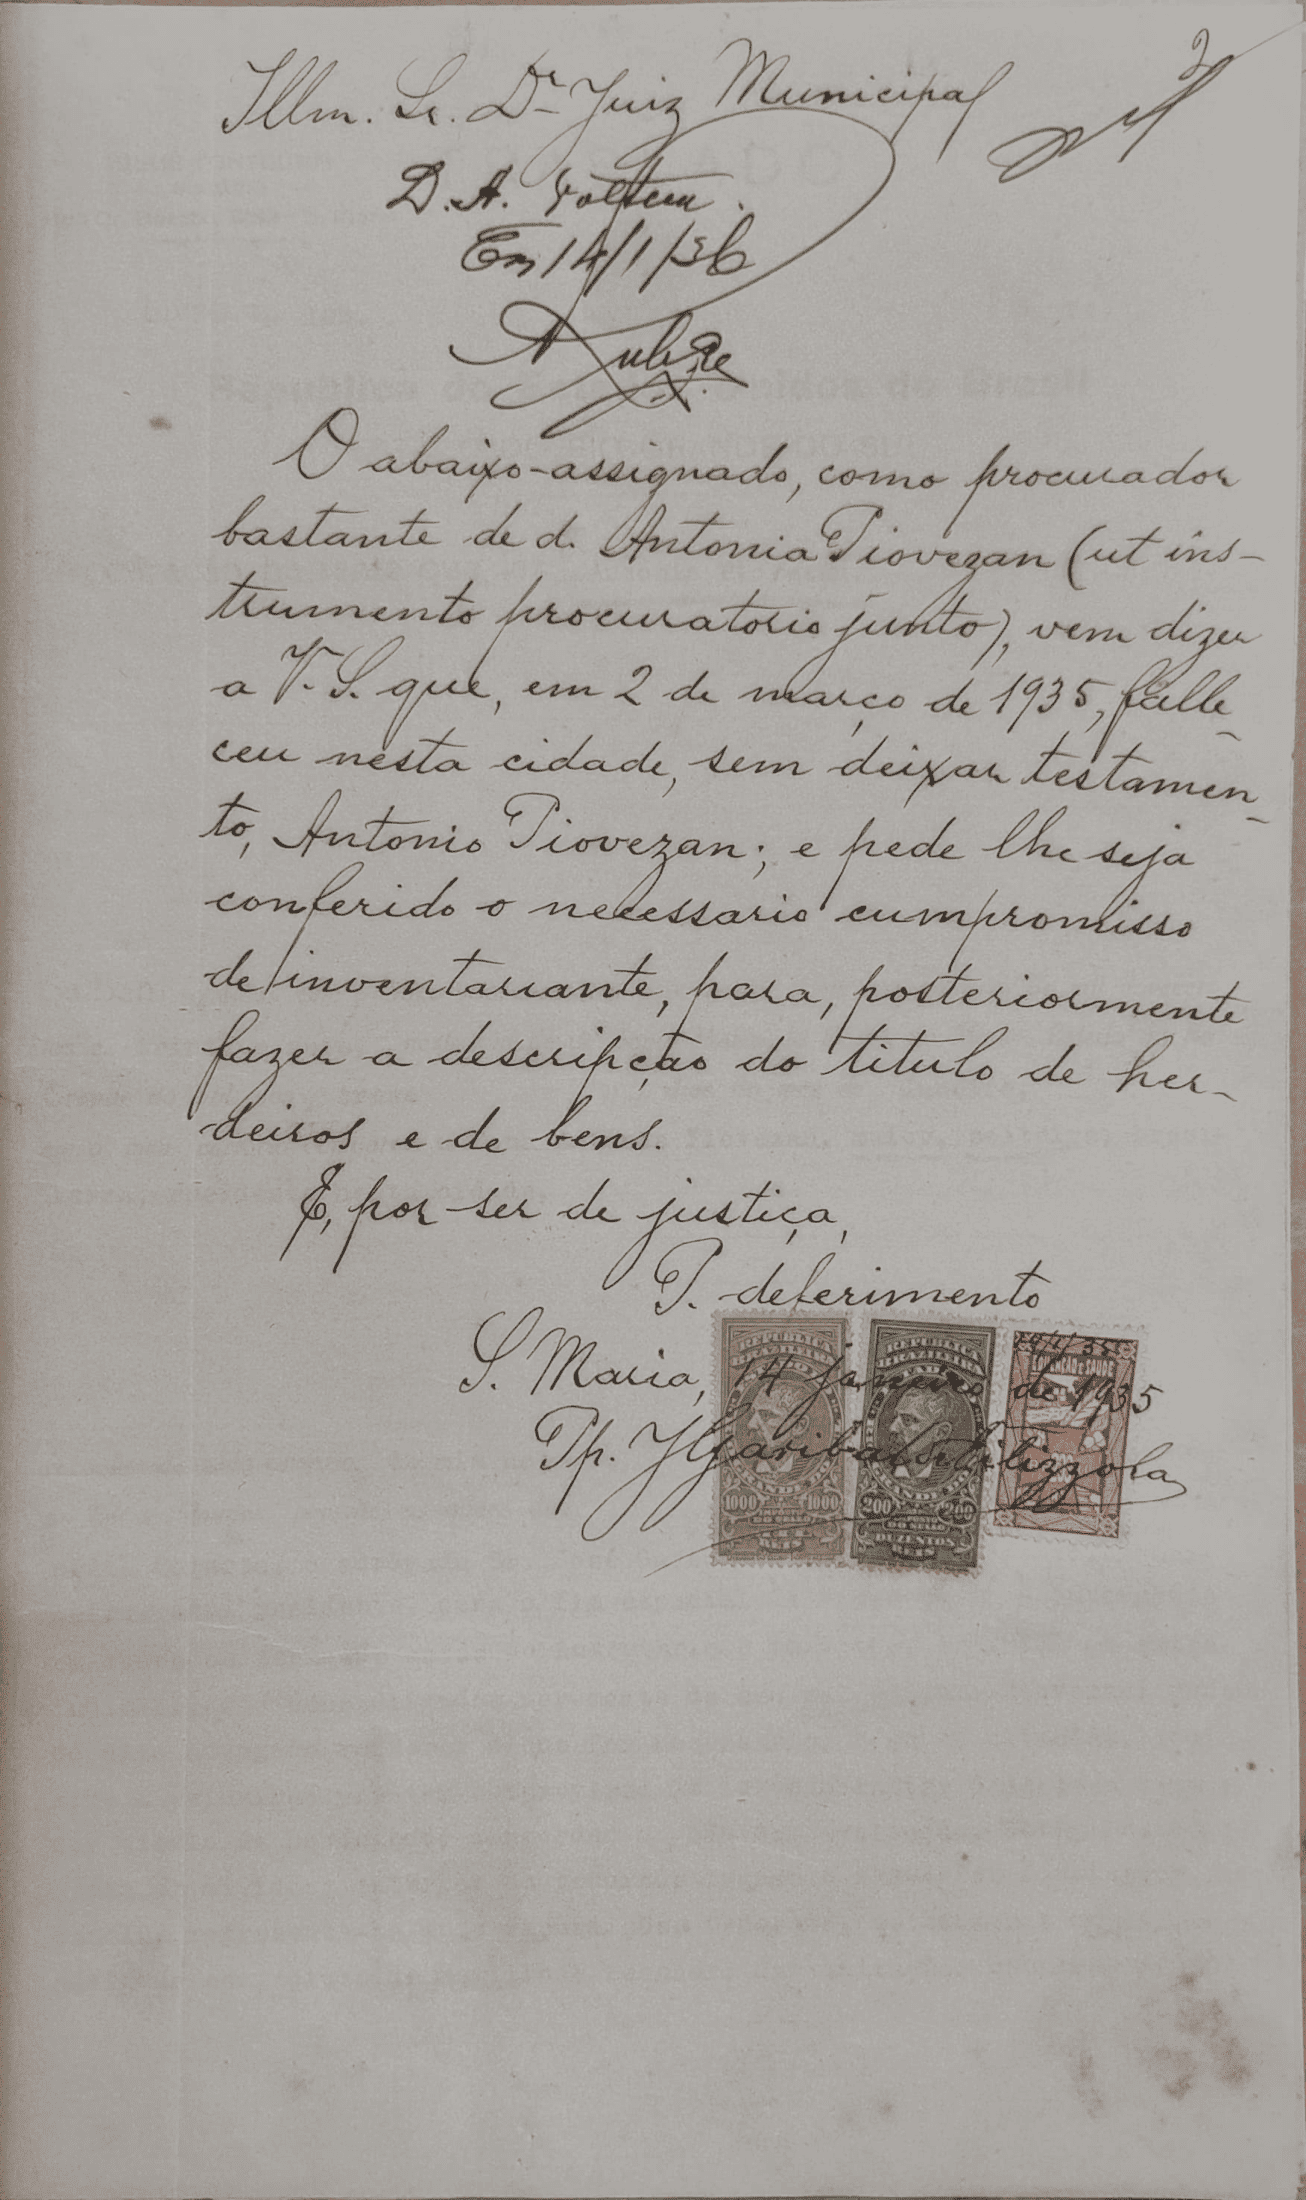 2
Illm. Sr. Dr. Juiz Municipal
D. A. Voltem.
Em 14/1/36
O abaixo-assignado, como procurador
bastante de d. Antonia Piovezan (ut ins-
trumento procuratorio junto), vem dizer
a V. S. que, em 2 de março de 1935, falle-
ceu nesta cidade, sem deixar testamen-
to, Antonio Piovezan; e pede lhe seja
conferido o necessario cumpromisso
de inventariante, para, posteriormente
fazer a descripção do titulo de her-
deiros e de bens.
E, por ser de justiça,
P. deferimento
S. Maria, 14 janeiro de 1935
Pp. Garibaldi Filizzola
REPUBLICA BRAZILEIRA
1000 1000
REIS
REPUBLICA BRAZILEIRA
200 200
DUZENTOS
REIS
EDUCAÇÃO E SAUDE